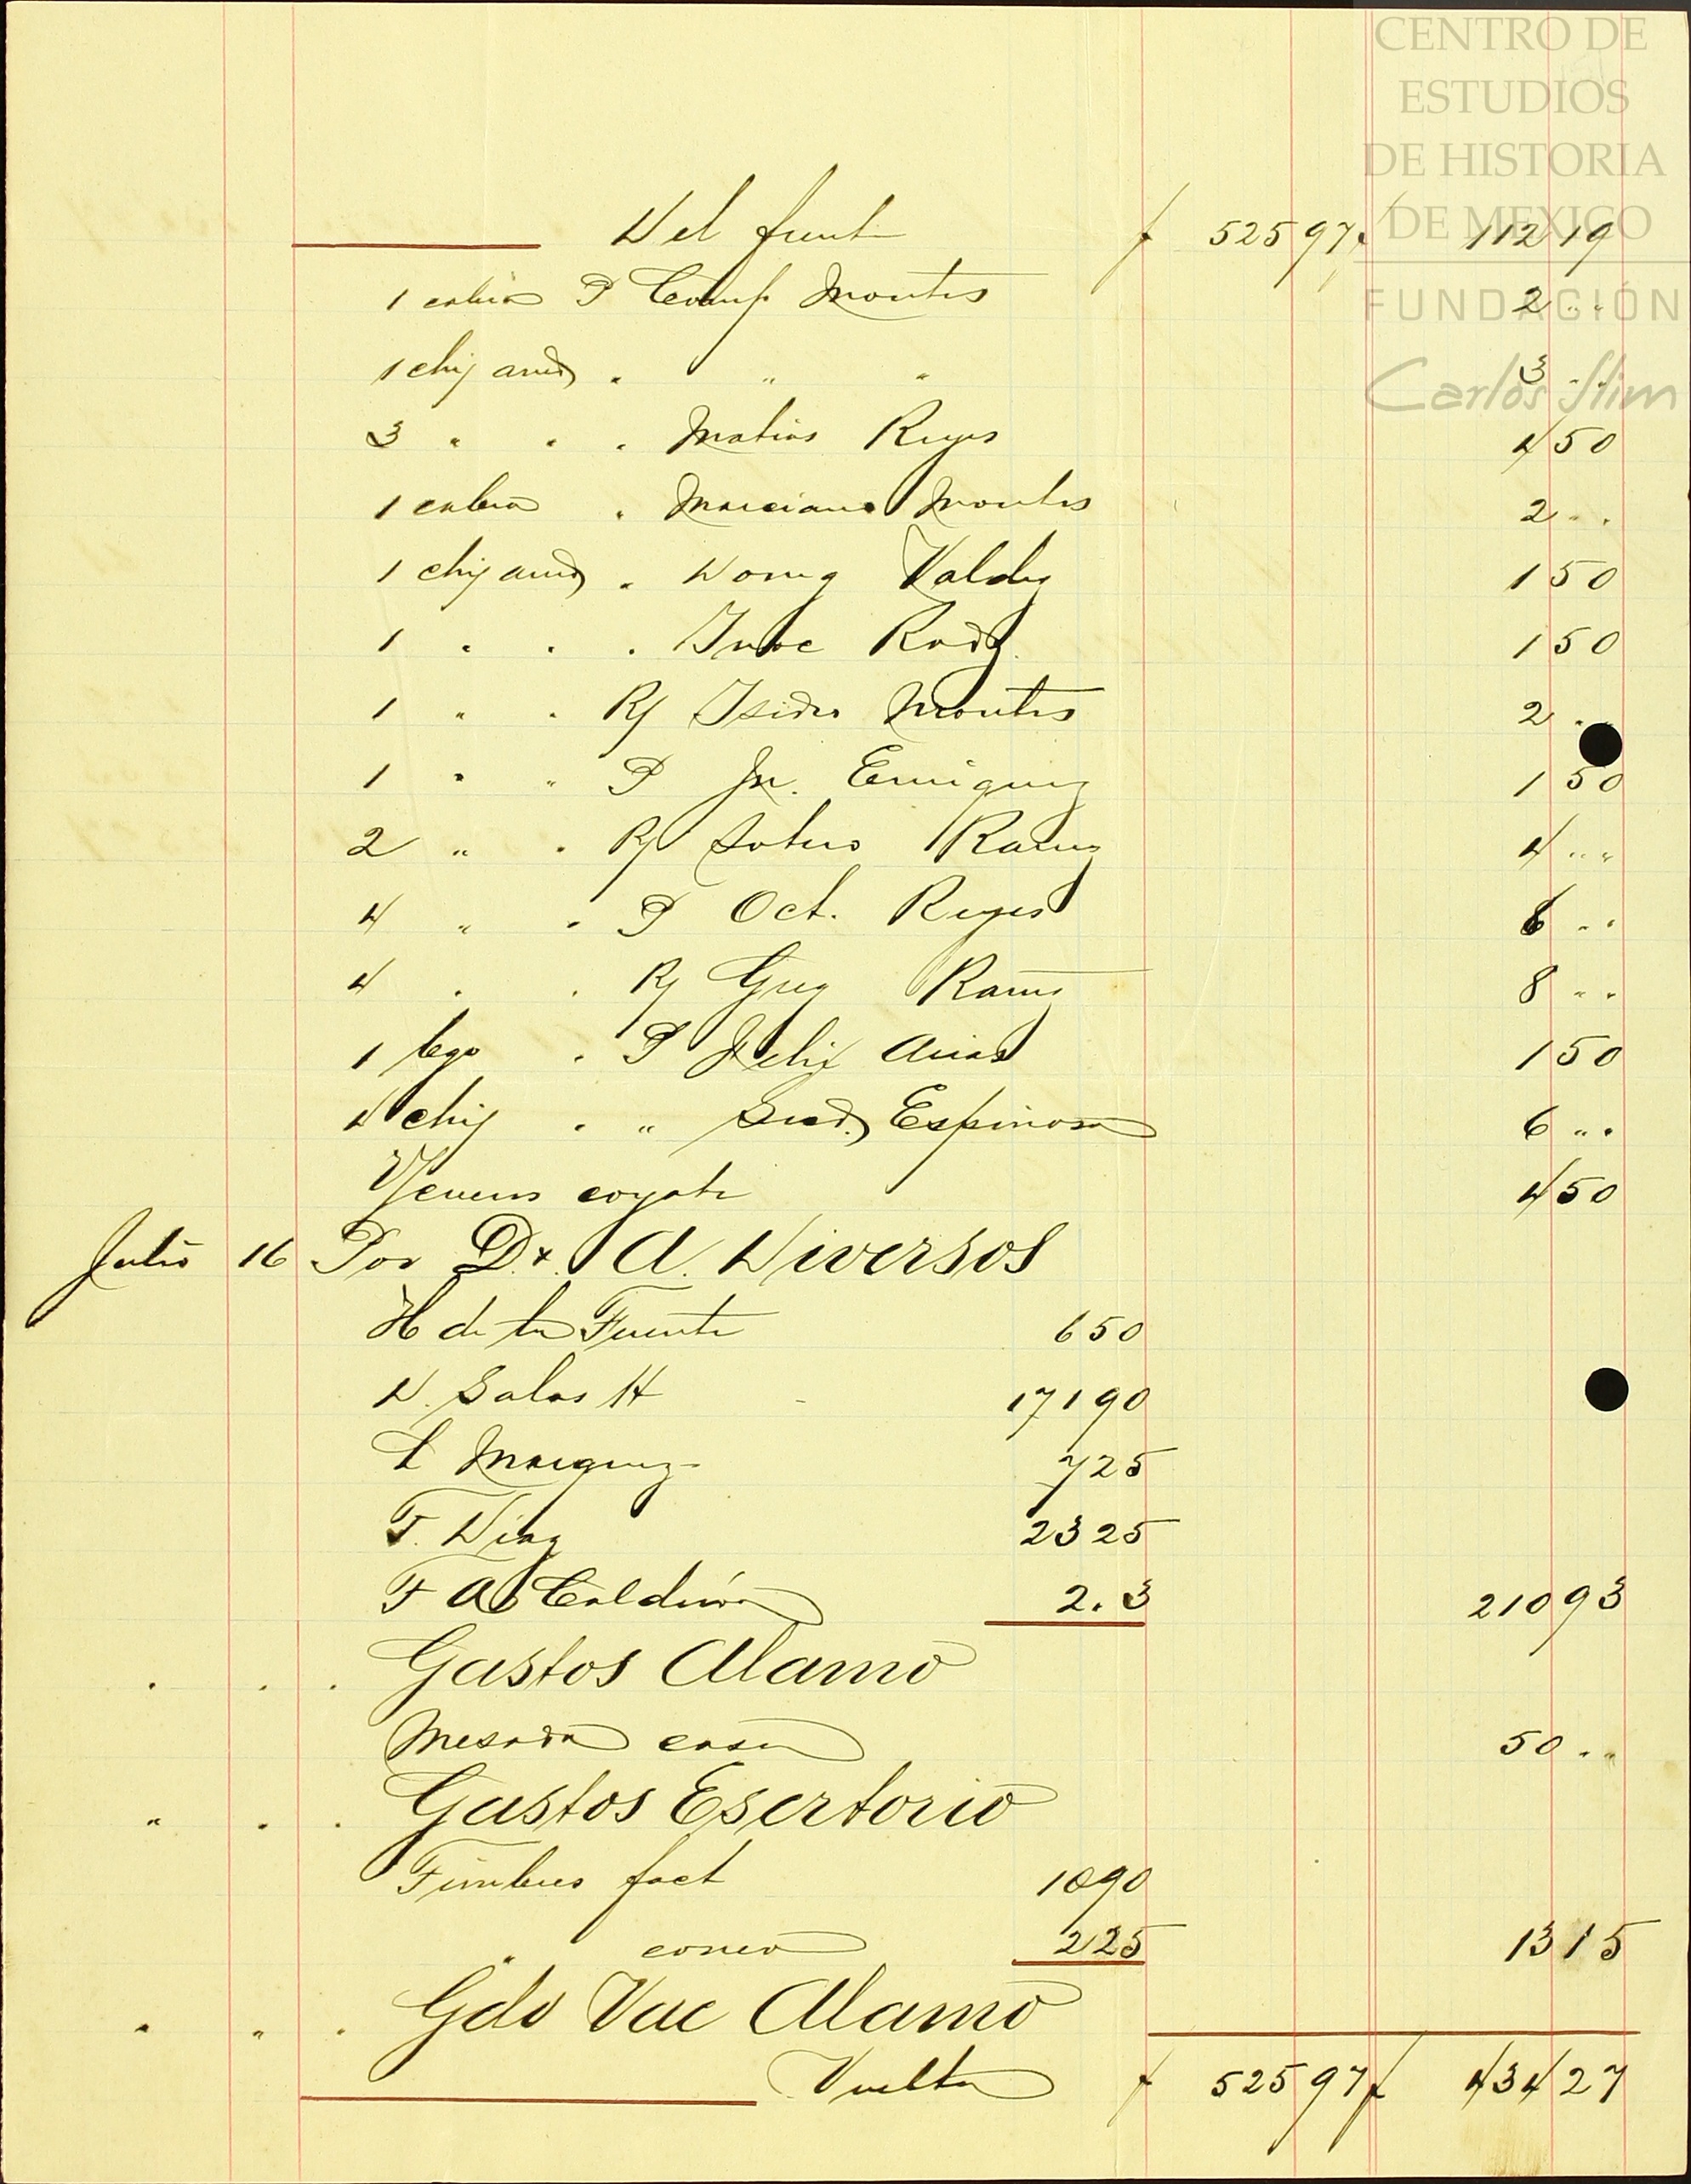 CENTRO DE
ESTUDIOS
DE HISTORIA
DE MEXICO
FUNDACIÓN
Carlos Slim
Del frente $ 525 97 $ 112 19
1 cabra P Comp. Montes 2 " "
1 chij and " " " 3 " "
3 " " " Matias Reyes 4 50
1 cabra " Marciano Montes 2 " "
1 chij and " Domg Valdz 1 50
1 " " " Rodz 1 50
1 " " Rj Isidro Montes 2 " "
1 " " P Jn. Enriquez 1 50
2 " " Rj Sotero Ramz 4 " "
4 " " P Oct. Reyes 6 " "
4 " " Rj Greg Ramz 8 " "
1 " P Felix Arias 1 50
4 chij " " Espinosa 6 " "
coyote 4 50
Julio 16 Por Dx. A. Diversos
H de la Fuente 6 50
D. Salas H 171 90
L Marquez 7 25
T. Diaz 23 25
F A Calderón 2.3 210 93
" " " Gastos Alamo
Mesada casa 50 " "
" " " Gastos Escrtorio
Timbres fact 10 90
" correo 2 25 13 15
" " " Gdo Vac Alamo
Vuelta $ 525 97 $ 434 27